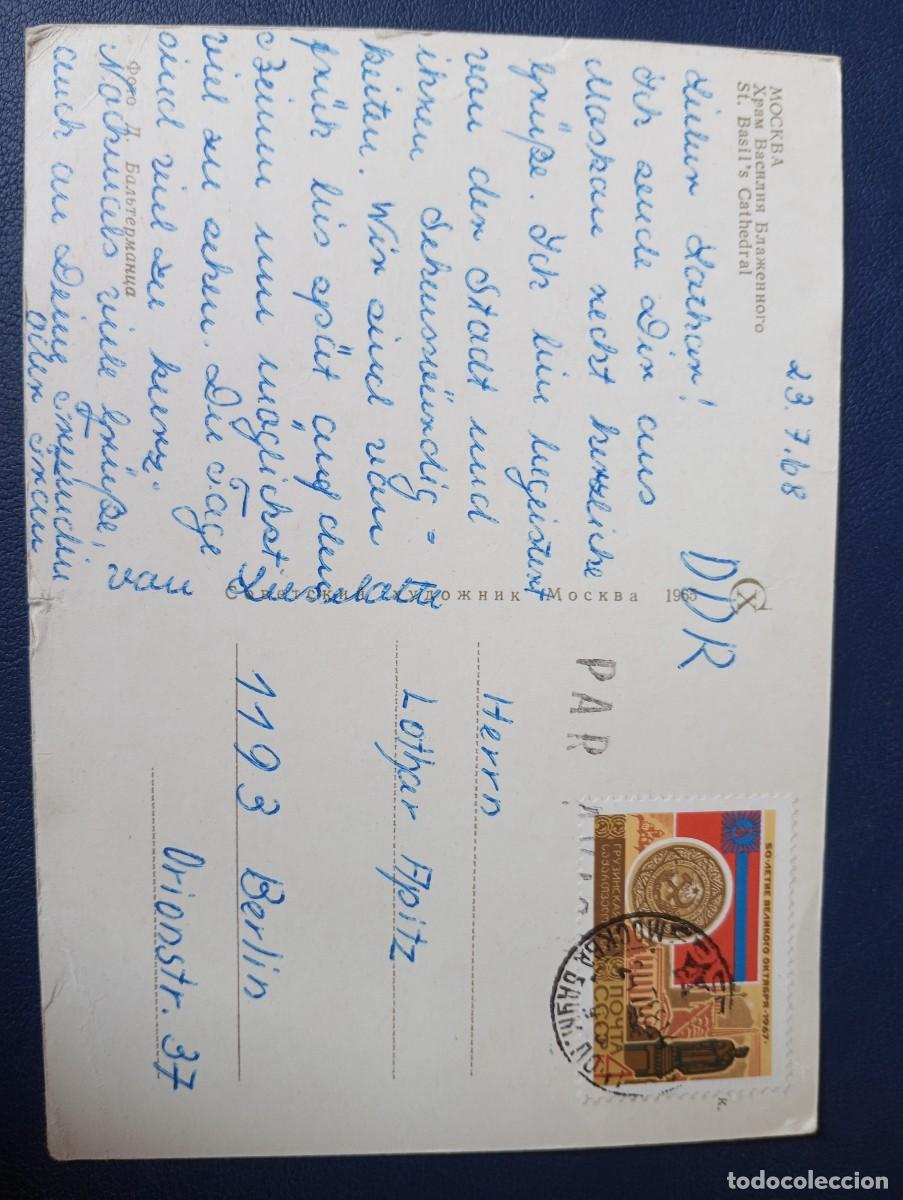 МОСКВА
Храм Василия Блаженного
St. Basil's Cathedral
23.7.68
Lieber Lothar!
Ich sende Dir aus
Moskau recht herzliche
Grüße. Ich bin begeistert
von der Stadt und
ihren Sehenswürdig=
keiten. Wir sind vom
früh bis spät auf den
Beinen um möglichst
viel zu sehen. Die Tage
sind viel zu kurz.
Nochmals viele Grüße,
auch an Deine
von
Фото Д. Бальтерманца
Советский художник Москва 1965
DDR
PAR
Herrn
Lothar Apitz
1193 Berlin
Orionstr. 37
50-ЛЕТИЕ ВЕЛИКОГО ОКТЯБРЯ·1967·
ГРУЗИНСКАЯ
ПОЧТА
СССР
4
к.
МОСКВА
todocoleccion